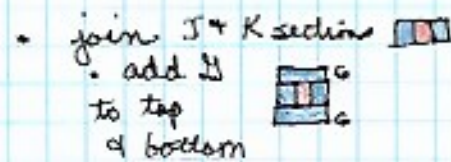 • join J & K sections
• add G
to top
& bottom
G
G